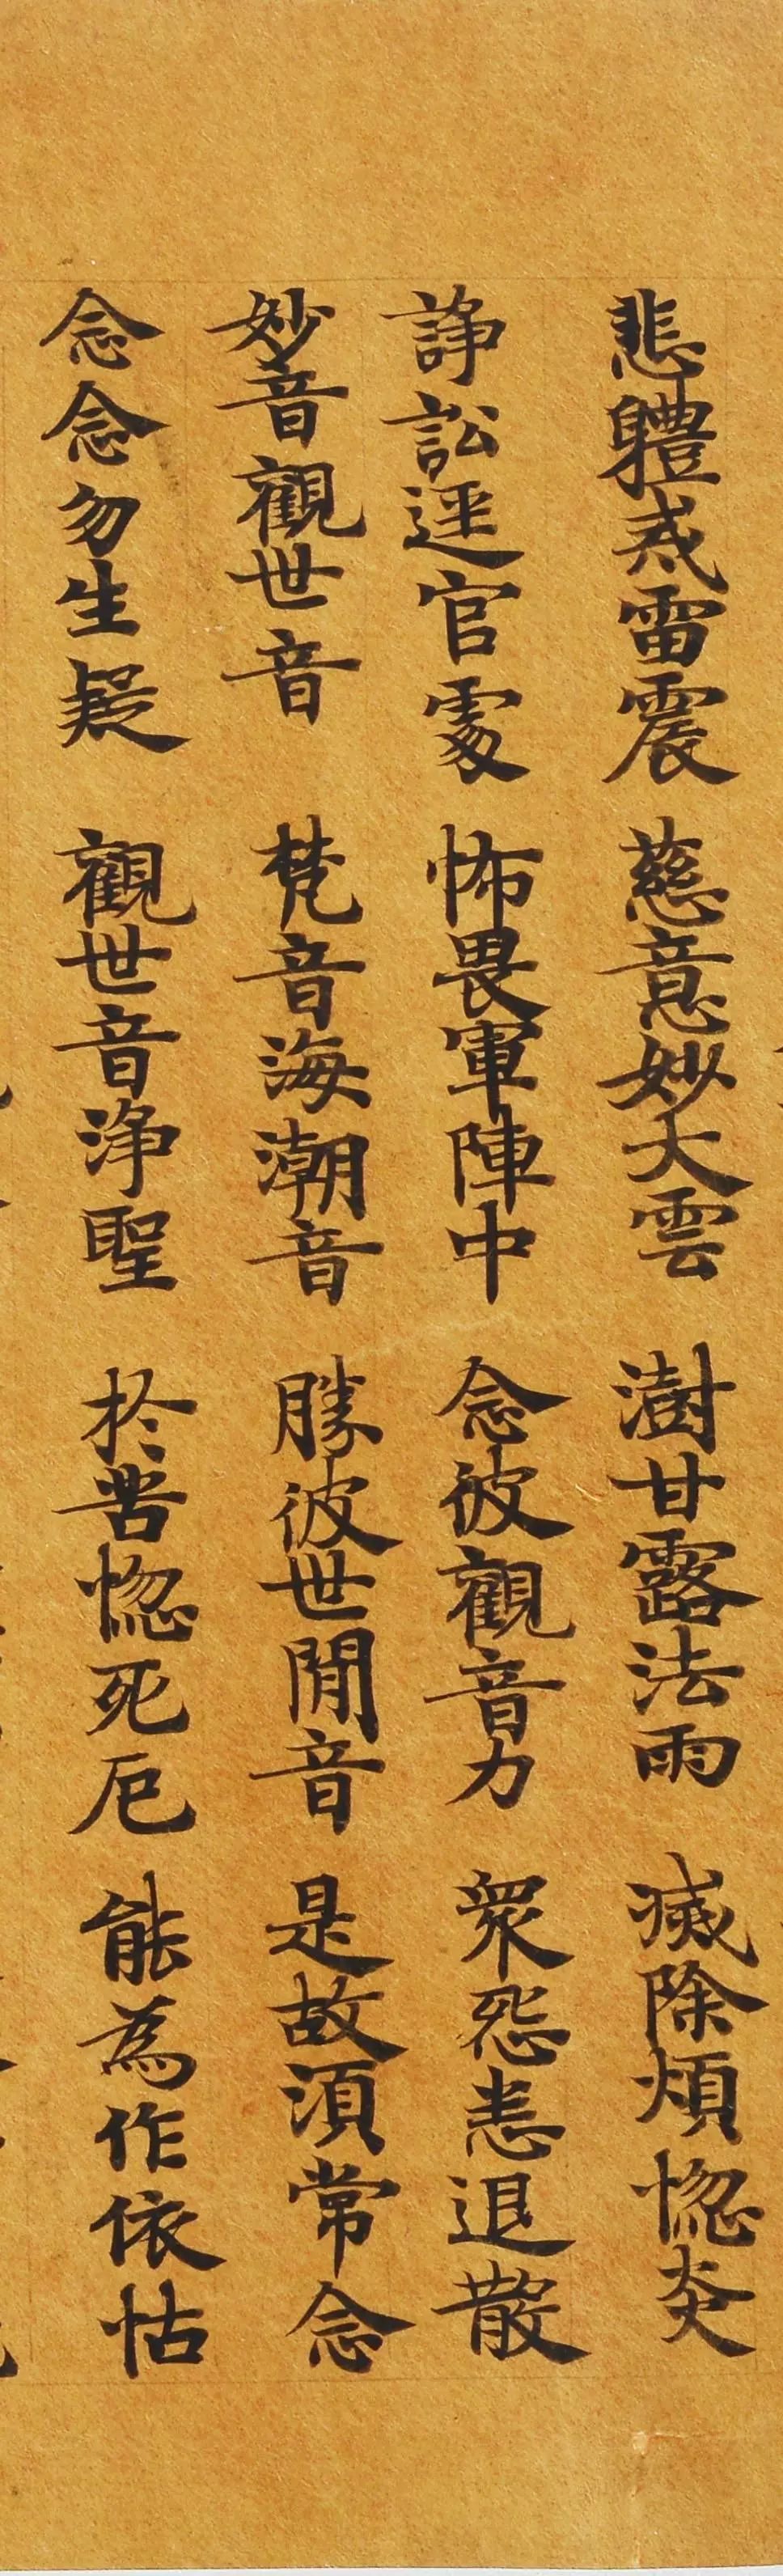 悲軆戒雷震 慈意妙大雲 澍甘露法雨 滅除煩惚炎
諍訟逕官處 怖畏軍陣中 念彼觀音力 衆怨悉退散
妙音觀世音 梵音海潮音 勝彼世間音 是故湏常念
念念勿生疑 觀世音浄聖 扵苦惚死厄 能為作依怙